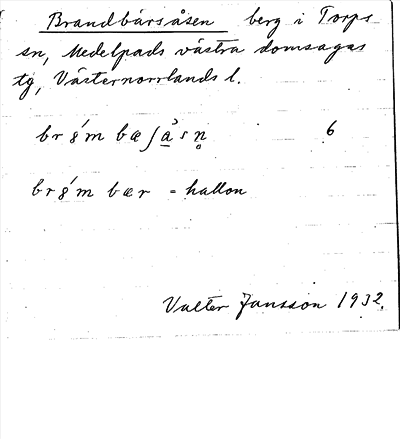 Brandbärsåsen berg i Torps
sn, Medelpads västra domsagas
tg, Västernorrlands l.
6
br m bær = hallon
Valter Jansson 1932.